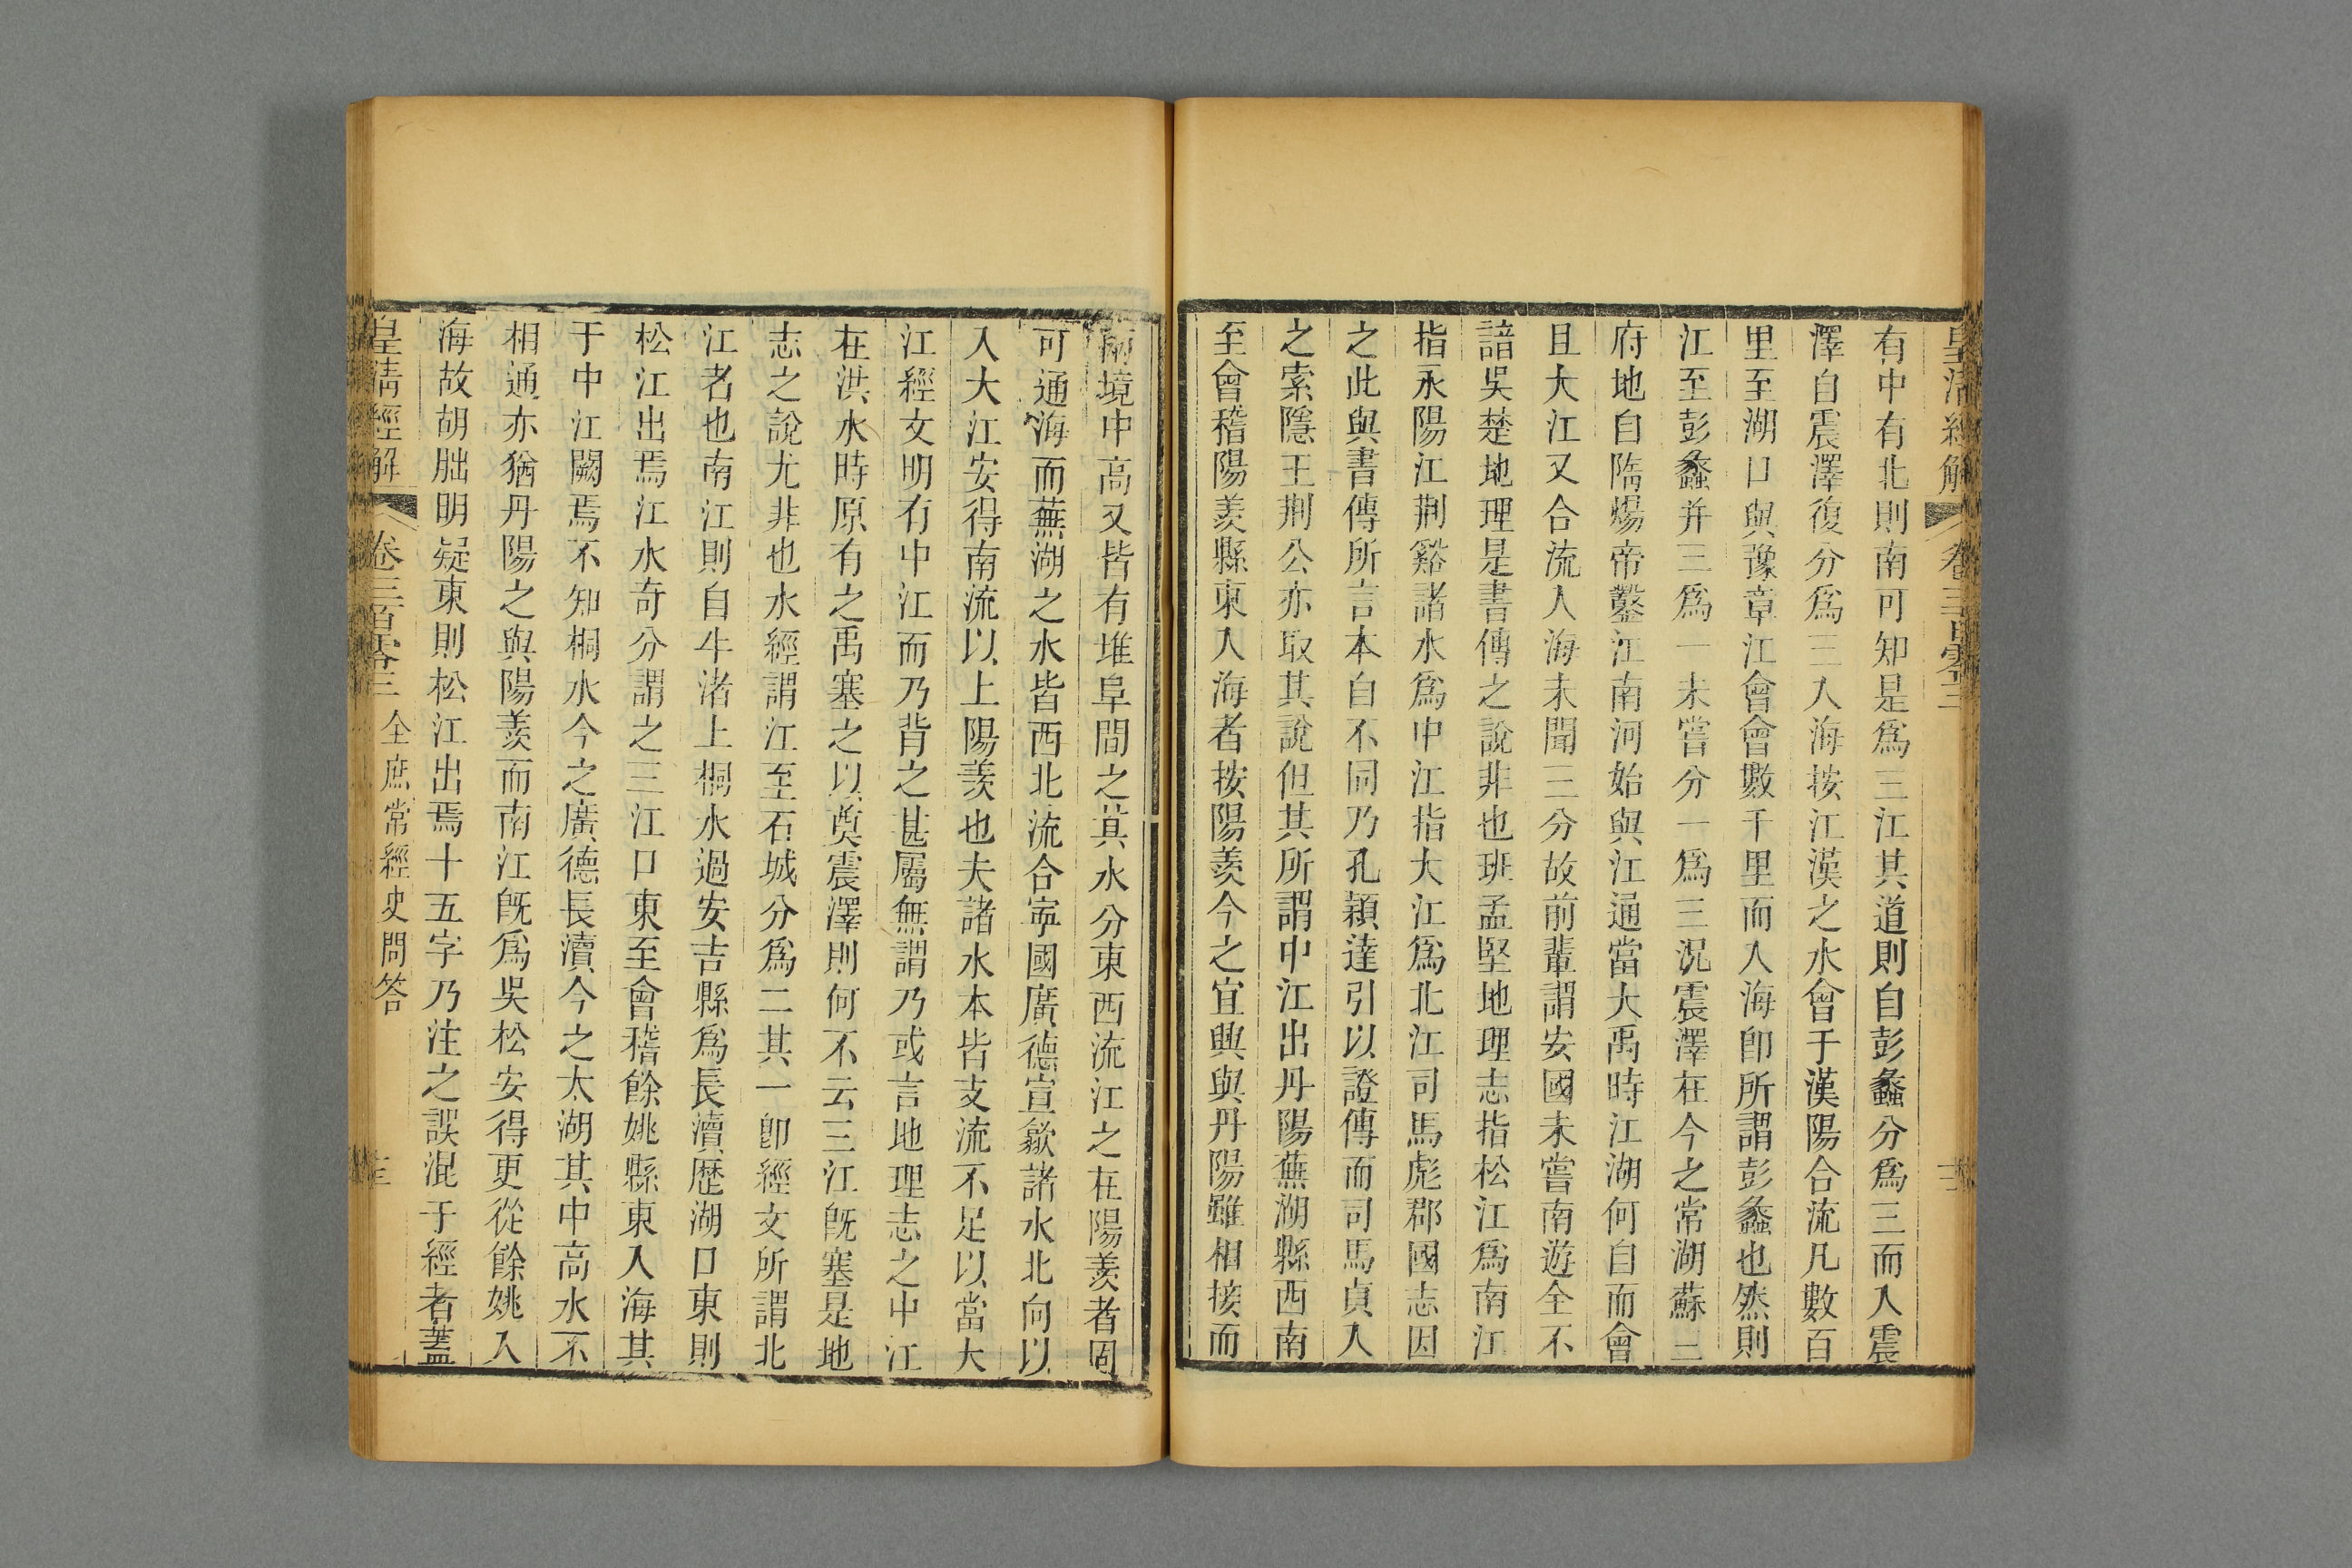 皇清經解 卷三百零三
有中有北則南可知是爲三江其道則自彭蠡分爲三而入震
澤自震澤復分爲三入海按江漢之水會于漢陽合流凡數百
里至湖口與豫章江會會數千里而入海卽所謂彭蠡也然則
江至彭蠡并三爲一未嘗分一爲三況震澤在今之常湖蘇三
府地自隋煬帝鑿江南河始與江通當大禹時江湖何自而會
且大江又合流入海未聞三分故前輩謂安國未嘗南遊全不
諳吳楚地理是書傳之說非也班孟堅地理志指松江爲南江
指永陽江荆谿諸水爲中江指大江爲北江司馬彪郡國志因
之此與書傳所言本自不同乃孔穎達引以證傳而司馬貞入
之索隱王荆公亦取其說但其所謂中江出丹陽蕪湖縣西南
至會稽陽羨縣東入海者按陽羨今之宜興與丹陽雖相接而
兩境中高又皆有堆阜間之其水分東西流江之在陽羨者固
可通海而蕪湖之水皆西北流合寧國廣德宣歙諸水北向以
入大江安得南流以上陽羨也夫諸水本皆支流不足以當大
江經文明有中江而乃背之甚屬無謂乃或言地理志之中江
在洪水時原有之禹塞之以奠震澤則何不云三江旣塞是地
志之說尤非也水經謂江至石城分爲二其一卽經文所謂北
江者也南江則自牛渚上桐水過安吉縣爲長瀆歷湖口東則
松江出焉江水奇分謂之三江口東至會稽餘姚縣東入海其
于中江闕焉不知桐水今之廣德長瀆今之太湖其中高水不
相通亦猶丹陽之與陽羨而南江旣爲吳松安得更從餘姚入
海故胡朏明疑東則松江出焉十五字乃注之誤混于經者蓋
皇清經解 卷三百零三 全庶常經史問答